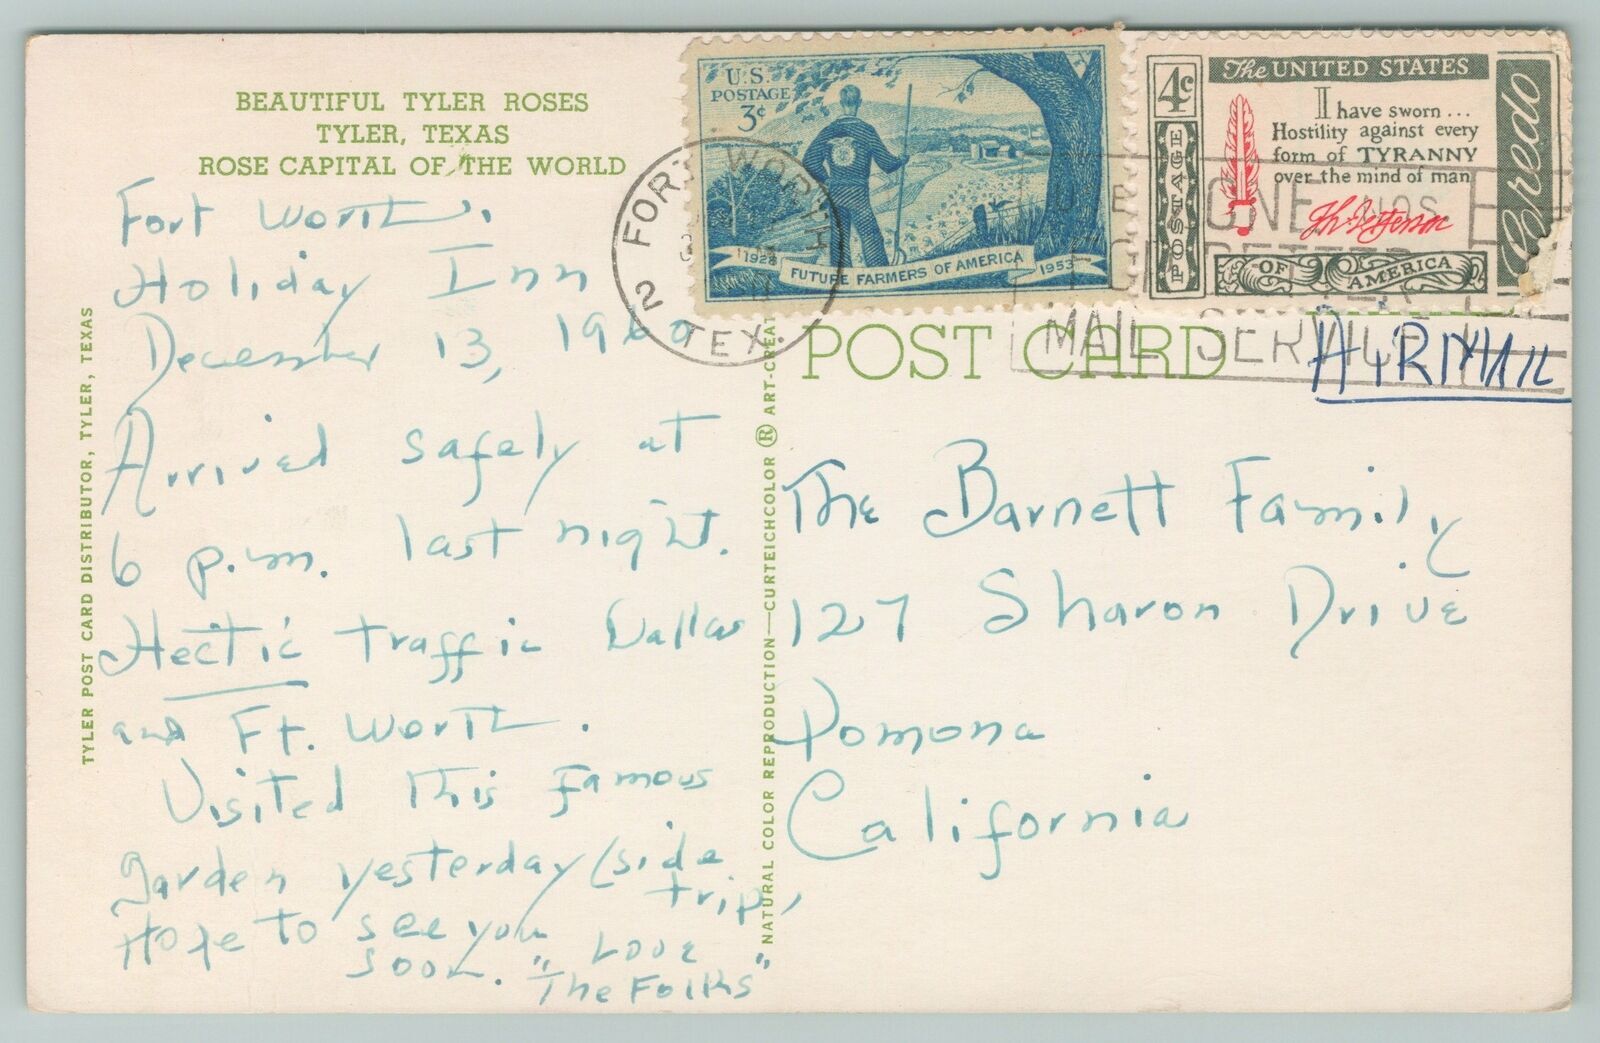 BEAUTIFUL TYLER ROSES
TYLER, TEXAS
ROSE CAPITAL OF THE WORLD
Fort Worth,
Holiday Inn
December 13, 1960
Arrived safely at
6 p.m. last night.
Hectic traffic Dallas
and Ft. Worth.
Visited this famous
Garden yesterday (side
trip,
Hope to see you
soon. "Love
The Folks"
TYLER POST CARD DISTRIBUTOR, TYLER, TEXAS
NATURAL COLOR REPRODUCTION—CURTEICHCOLOR ® ART-CREAT
U.S.
POSTAGE
3¢
1928
FUTURE FARMERS OF AMERICA
1953
FORT WORTH
2
TEX.
4¢
POSTAGE
The UNITED STATES
I have sworn...
Hostility against every
form of TYRANNY
over the mind of man
Th Jefferson
OF AMERICA
Credo
ZONE NOS.
MAIL SERVICE
POST CARD
AiRMAIL
The Barnett Family
127 Sharon Drive
Pomona
California